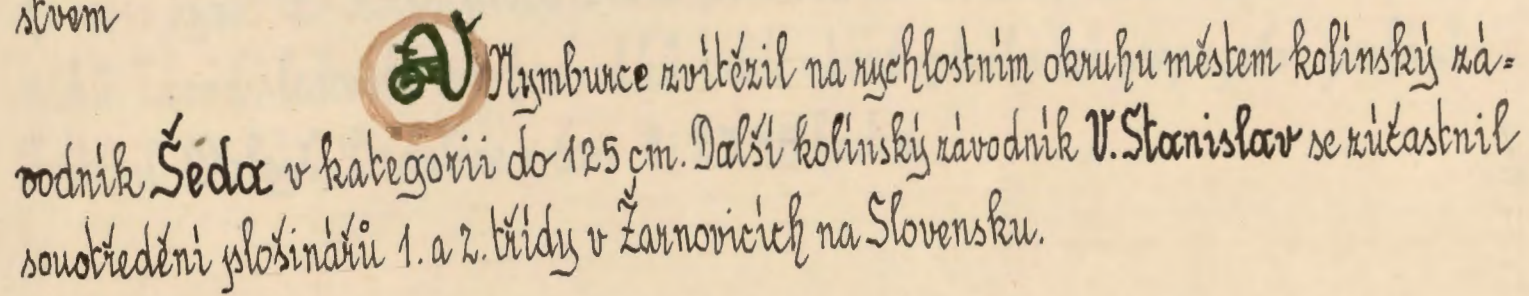 stvem
V Nymburce zvítězil na rychlostním okruhu městem kolínský zá=
vodník Šéda v kategorii do 125 cm. Další kolínský závodník V. Stanislav se zúčastnil
soustředění plošinářů 1. a 2. třídy v Žarnovicích na Slovensku.